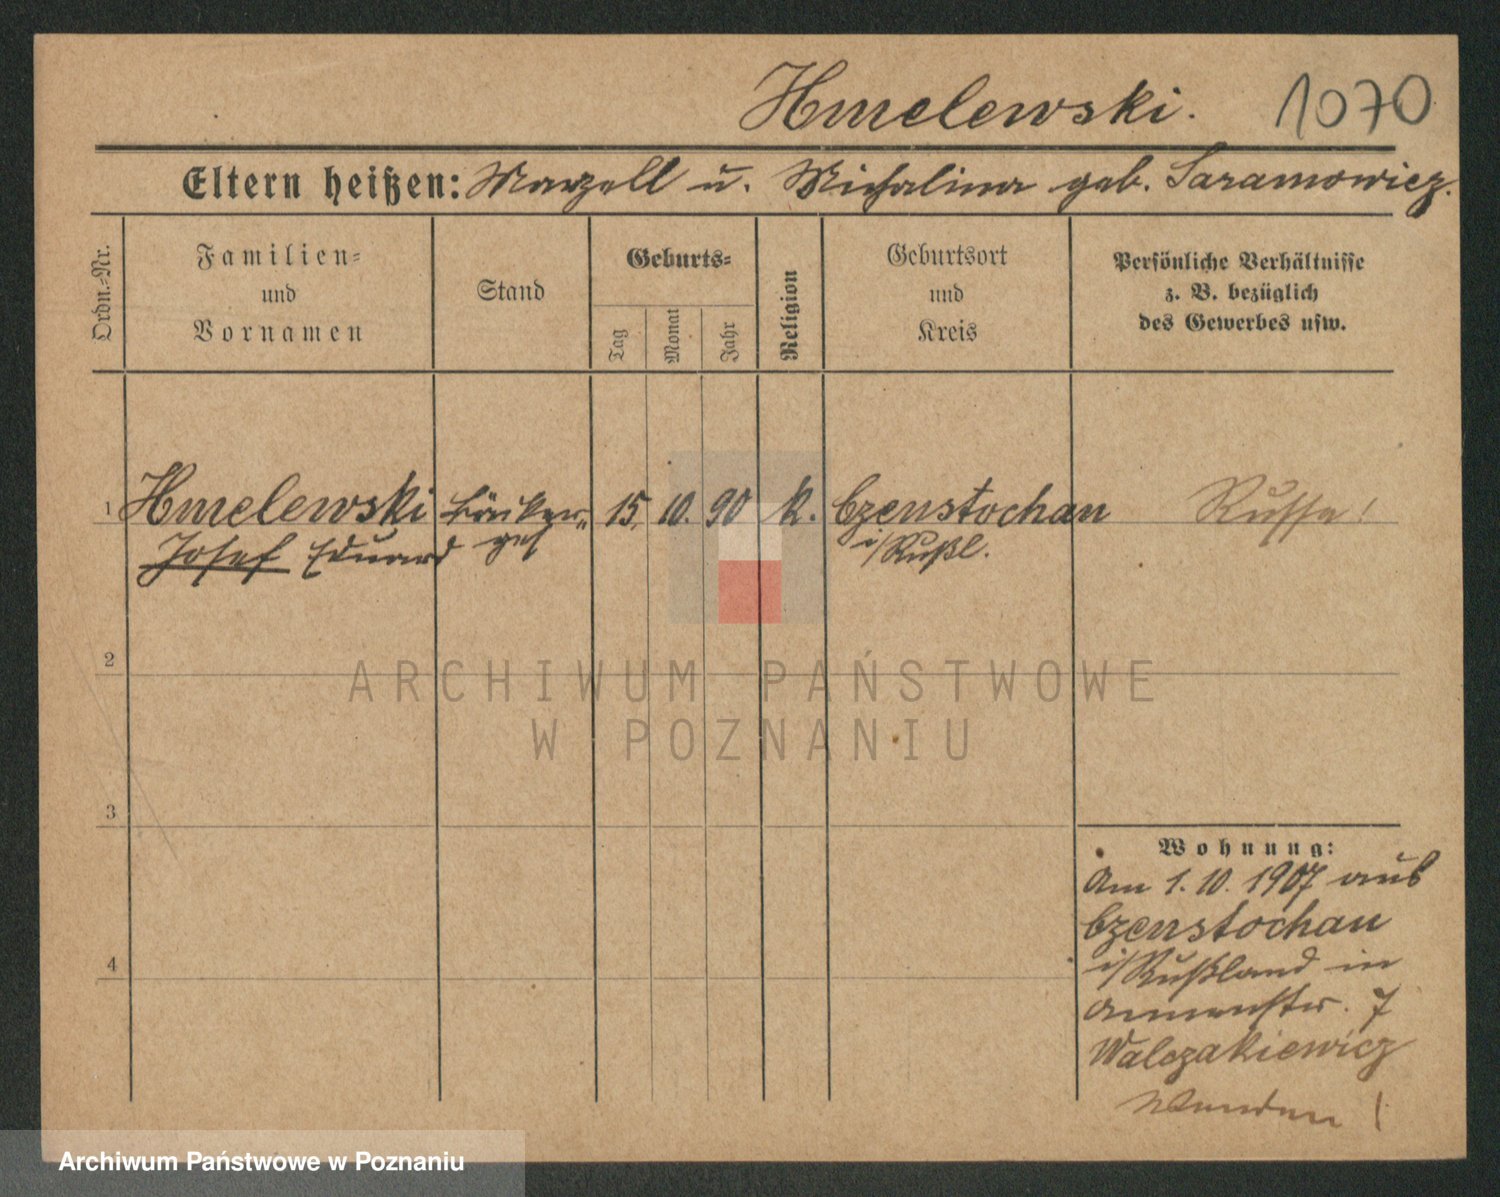 Hmelewski. 1070
Eltern heißen: Marzell u. Michalina geb. Saramowicz.
Ordn.-Nr.
Familien- und Vornamen
Stand
Geburts-
Tag
Monat
Jahr
Religion
Geburtsort und Kreis
Persönliche Verhältnisse
z. B. bezüglich
des Gewerbes usw.
1 Hmelewski Bäcker- 15. 10. 90 k. Czenstochau Russe!
Josef Eduard ges i/Rußl.
2
ARCHIWUM PAŃSTWOWE
W POZNANIU
3
Wohnung:
Am 1. 10. 1907 aus
Czenstochau
i/Rußland in
4
Annenstr. 7
Walczakiewicz
Wenden!
Archiwum Państwowe w Poznaniu